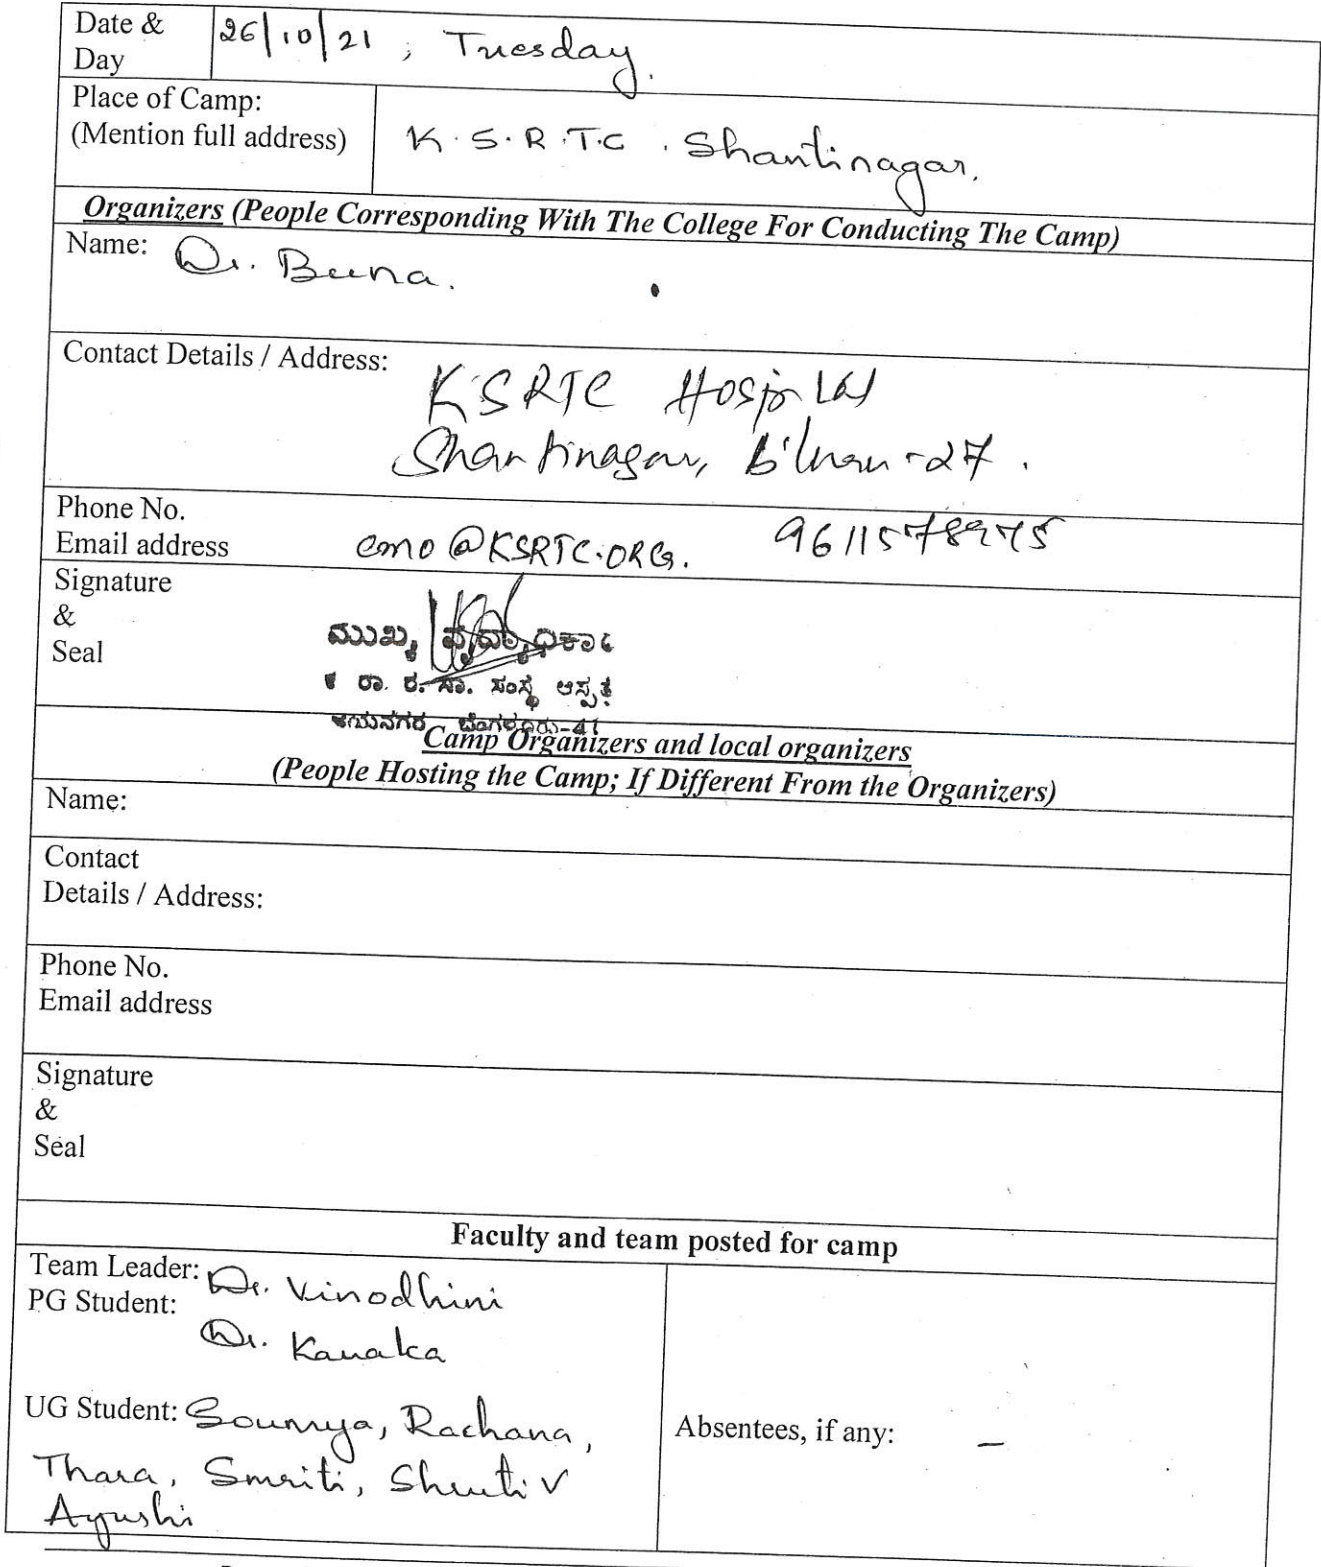 Date & 26/10/21 , Tuesday.
Day
Place of Camp:
(Mention full address) K.S.R.T.C. Shantinagar.
Organizers (People Corresponding With The College For Conducting The Camp)
Name: Dr. Beena.
Contact Details / Address:
KSRTC Hospital
Shantinagar, -27.
Phone No.
Email address cmo@KSRTC.ORG.
Signature
&
Seal
ಮುಖ್ಯ
ರಾ. ರ. ಸಾ. ಸಂಸ್ಥೆ ಆಸ್ಪತ್ರೆ
Camp Organizers and local organizers
(People Hosting the Camp; If Different From the Organizers)
Name:
Contact
Details / Address:
Phone No.
Email address
Signature
&
Seal
Faculty and team posted for camp
Team Leader: Dr. Vinodhini
PG Student:
Dr. Kanaka
UG Student: Soumya, Rachana,
Thara, Smriti, Shruti V
Ayushi
Absentees, if any: –